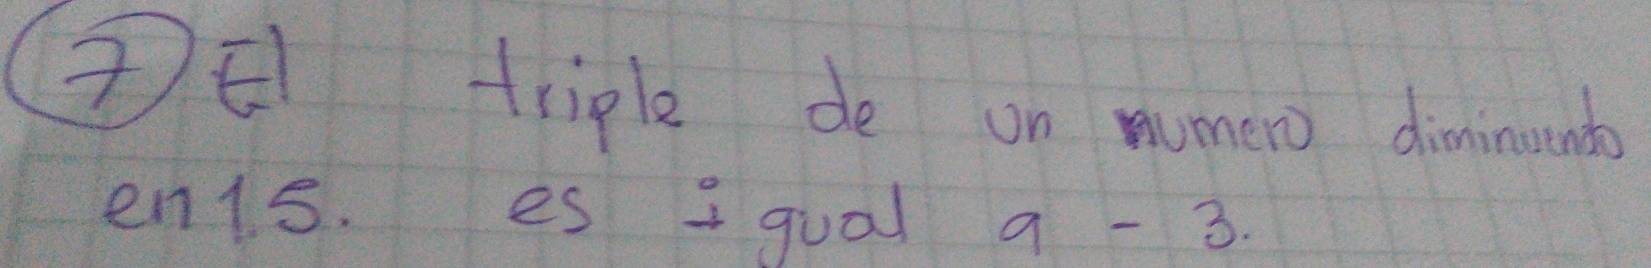 7 El triple de un numero diminuendo
en 15. es igual a - 3.